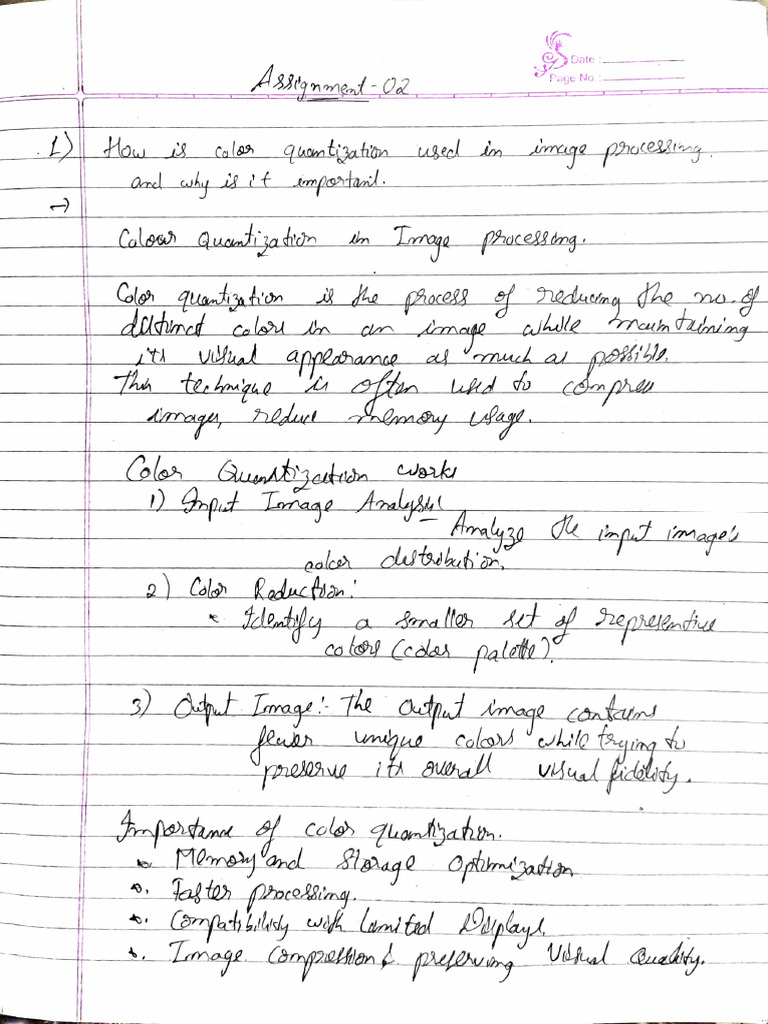 Date :
Page No :
Assignment - 02
1) How is color quantization used in image processing.
and why is it important.
→
Colour Quantization in Image processing.
Color quantization is the process of reducing the no. of
distinct colors in an image while maintaining
its visual appearance as much as possible.
This technique is often used to compress
images, reduce memory usage.
Color Quantization works
1) Input Image Analysis:
Analyze the input image's
color distribution.
2) Color Reduction:
• Identify a smaller set of representive
colors (color palette).
3) Output Image:- The output image contains
fewer unique colors while trying to
preserve its overall visual fidelity.
Importance of color quantization.
• Memory and Storage Optimization
• Faster processing.
• Compatibility with Limited Displays.
• Image Compression & preserving Visual Quality.